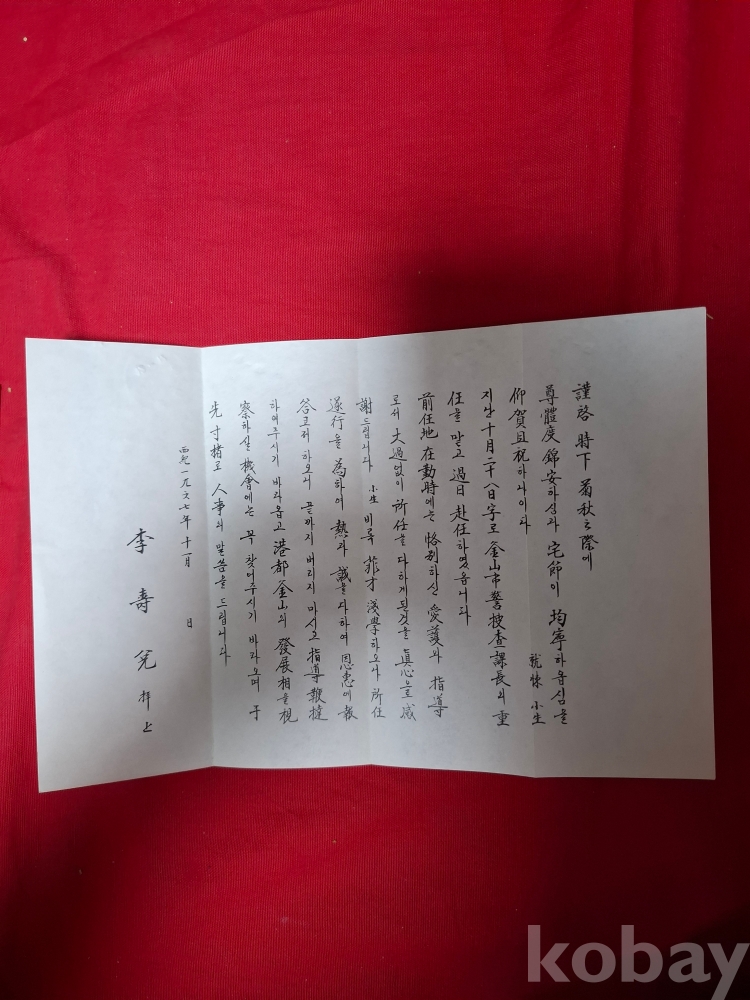 謹啓 時下 菊秋之際에
尊體度 錦安하심과 宅節이 均寧하옵심을
仰賀且祝하나이다 就悚 小生
지난 十月二十八日字로 釜山市警搜査課長의 重
任을 맡고 過日 赴任하였읍니다
前任地 在勤時에는 恪別하신 愛護와 指導
로서 大過없이 所任을 다하게된것을 眞心으로 感
謝드립니다 小生 비록 菲才 淺學하오나 所任
遂行을 爲하여 熱과 誠을 다하여 恩惠에 報
答코저 하오니 끝까지 버리지 마시고 指導 鞭撻
하여주시기 바라옵고 港都 釜山의 發展相을 視
察하실 機會에는 꼭 찾어주시기 바라오며 于
先 寸楮로 人事의 말씀을 드립니다
西紀一九六七年 十一月 日
李 壽 拜上
kobay